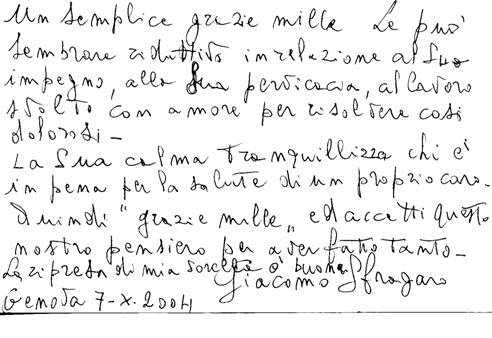 Un semplice grazie mille Le può
sembrare riduttivo in relazione al Suo
impegno, alla Sua pervicacia, al lavoro
svolto con amore per risolvere casi
dolorosi -
La Sua calma tranquillizza chi è
in pena per la salute di un proprio caro.
Quindi "grazie mille" ed accetti questo
nostro pensiero per aver fatto tanto -
La ripresa di mia sorella è buona
Giacomo Sfrogaro
Genova 7-X-2004